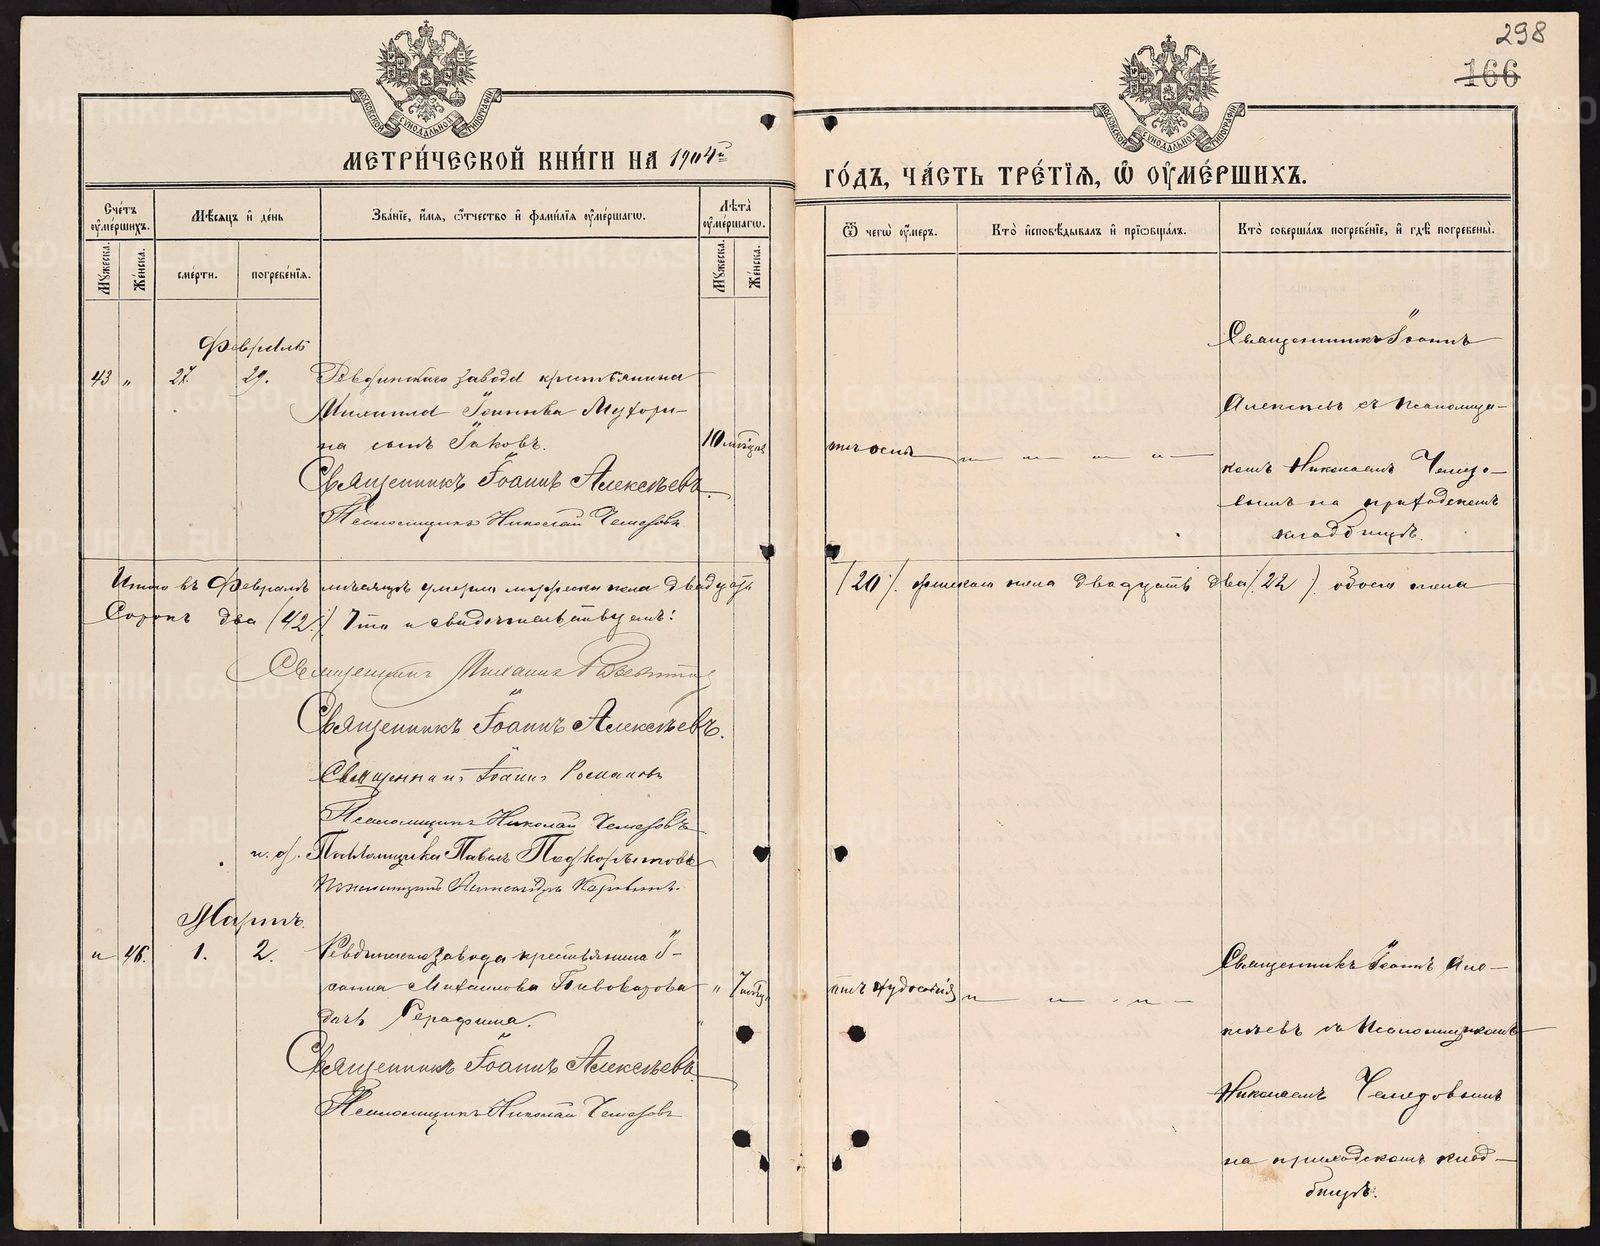 298
166
МЕТРИ́ЧЕСКОЙ КНИ́ГИ НА 1904й
ГО́ДЪ, ЧА́СТЬ ТРЕ́ТІѦ, Ѽ ОУМЕ́РШИХЪ.
Сче́тъ оуме́ршихъ.
Мꙋжеска.
Же́нска.
Мѣсѧцъ и де́нь
сме́рти.
погребе́нїѧ.
Зва́нїе, и́мѧ, ѻ́тчество и фами́лїѧ оуме́ршагѡ.
Лѣта̀ оуме́ршагѡ.
Мꙋжеска.
Же́нска.
Ѿ чегѡ̀ оу́меръ.
Кто̀ и҆сповѣ́дывалъ и прїѡбща́лъ.
Кто̀ соверша́лъ погребе́нїе, и гдѣ̀ погребены̀.
Февраль
43 " 27. 29. Ревдинскаго завода крестьянина
Михаила Іоаннова Мухори-
на сынъ Іаковъ.
10 мѣсяц.
Священникъ Іоаннъ Алексѣевъ.
Псаломщикъ Николай Чемезовъ
Священникъ Іоаннъ
Алексѣевъ съ псаломщи-
комъ Николаемъ Чемезо-
вымъ на приходскомъ
кладбищѣ.
Итого въ Февралѣ мѣсяцѣ умерло мужеска пола двадцать
(20). женскаго пола двадцать два (22) обоего пола
Сорокъ два (42). Что и свидѣтельствуемъ:
Священникъ Михаилъ
Священникъ Іоаннъ Алексѣевъ.
Священникъ Іоаннъ
Псаломщикъ Николай Чемезовъ
и. д. Псаломщика Павелъ Подкорытовъ
Псаломщикъ Александръ
Мартъ.
" 46. 1. 2. Ревдинскаго завода крестьянина І-
оанна Михаилова Пивоварова
дочь Серафима.
" 7 мѣсяц.
Священникъ Іоаннъ Алексѣевъ.
Псаломщикъ Николай Чемезовъ
Священникъ Іоаннъ Але-
ксѣевъ съ псаломщикомъ
Николаемъ Чемезовымъ
на приходскомъ клад-
бищѣ.
METRIKI.GASO-URAL.RU